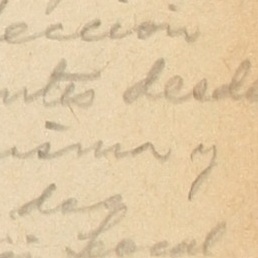 ección
ntes desde
isma y
das
local